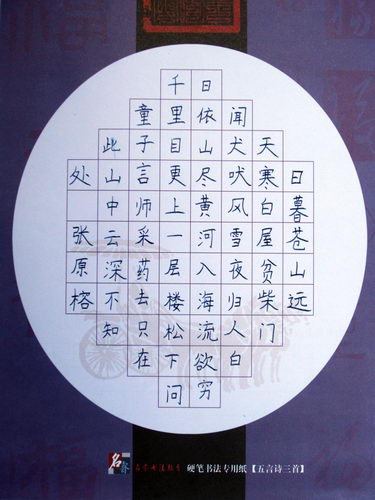 日暮苍山远
天寒白屋贫柴门
闻犬吠风雪夜归人白
日依山尽黄河入海流欲穷
千里目更上一层楼松下问
童子言师采药去只在
此山中云深不知
处 张原榕
硬笔书法专用纸【五言诗三首】